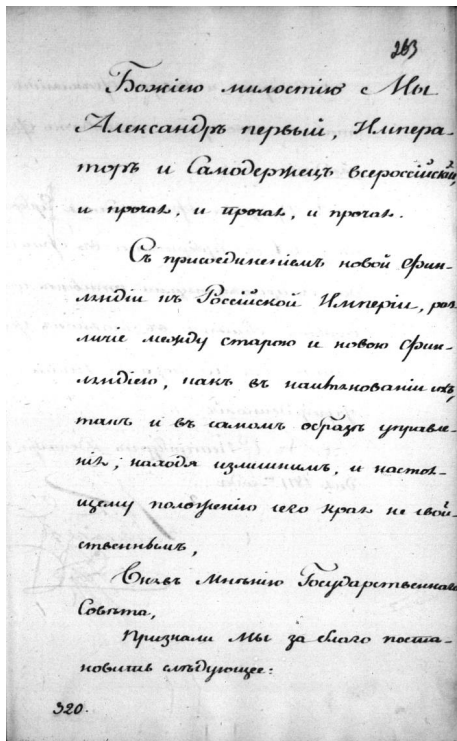 263
Божіею милостію Мы
Александръ первый, Импера-
торъ и Самодержецъ всероссійскій,
и прочая, и прочая, и прочая.
Съ присоединеніемъ новой Фин-
ляндіи къ Россійской Имперіи, раз-
личіе между старою и новою Фин-
ляндіею, какъ въ наименованіи ихъ,
такъ и въ самомъ образѣ управле-
нія, находя излишнимъ, и настоя-
щему положенію сего края не свой-
ственнымъ,
Внявъ мнѣнію Государственнаго
Совѣта,
Признали Мы за благо поста-
новить слѣдующее:
320.